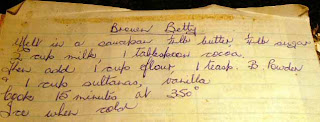 Brown Betty
Melt in a saucepan ¼lb butter ¼lb sugar
½ cup milk 1 tablespoon cocoa.
Then add 1 cup flour 1 teasp. B. Powder
" 1 cup sultanas, vanilla
Cook 15 minutes at 350°
Ice when cold